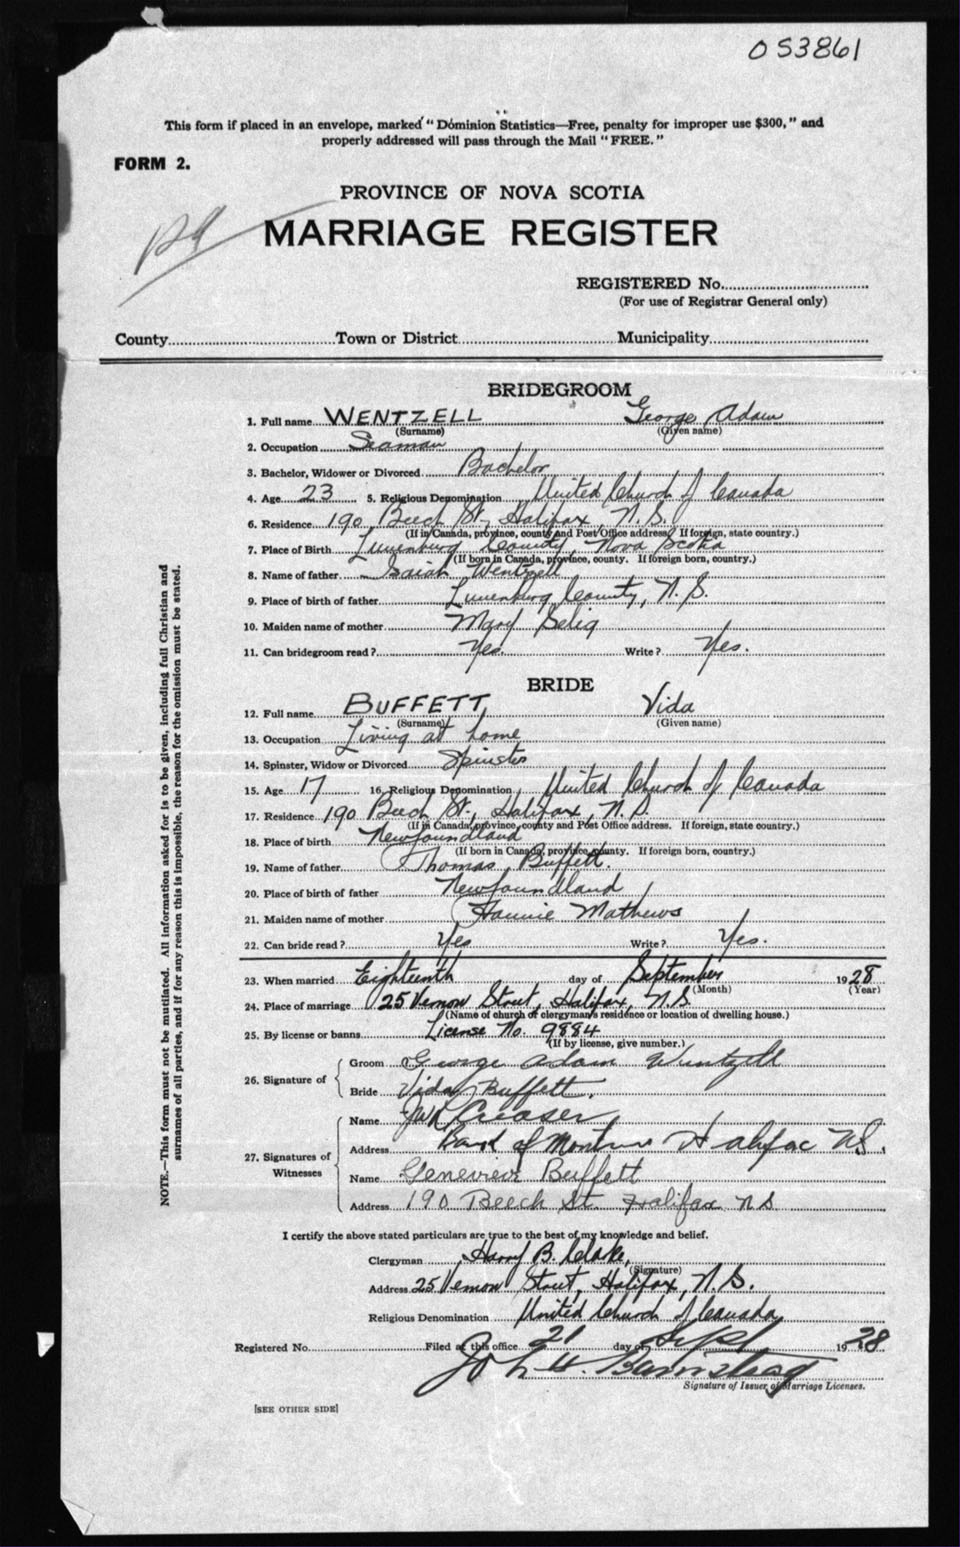 053861
This form if placed in an envelope, marked "Dominion Statistics—Free, penalty for improper use $300," and
properly addressed will pass through the Mail "FREE."
FORM 2.
PROVINCE OF NOVA SCOTIA
MARRIAGE REGISTER
REGISTERED No.
(For use of Registrar General only)
County Town or District Municipality
BRIDEGROOM
1. Full name WENTZELL George Adam
(Surname) (Given name)
2. Occupation Seaman
3. Bachelor, Widower or Divorced Bachelor
4. Age 23 5. Religious Denomination United Church of Canada
6. Residence 190 Beech St, Halifax, N.S.
(If in Canada, province, county and Post Office address. If foreign, state country.)
7. Place of Birth Lunenburg County, Nova Scotia
(If born in Canada, province, county. If foreign born, country.)
8. Name of father Isaiah Wentzell
9. Place of birth of father Lunenburg County, N.S.
10. Maiden name of mother Mary Selig
11. Can bridegroom read? Yes. Write? Yes.
BRIDE
12. Full name BUFFETT, Vida
(Surname) (Given name)
13. Occupation Living at home
14. Spinster, Widow or Divorced Spinster
15. Age 17 16. Religious Denomination United Church of Canada
17. Residence 190 Beech St., Halifax, N.S
(If in Canada, province, county and Post Office address. If foreign, state country.)
18. Place of birth Newfoundland
(If born in Canada, province, county. If foreign born, country.)
19. Name of father Thomas Buffett.
20. Place of birth of father Newfoundland
21. Maiden name of mother Fannie Mathews
22. Can bride read? Yes Write? Yes.
23. When married Eighteenth day of September 1928
(Month) (Year)
24. Place of marriage 25 Vernon Street, Halifax, N.S.
(Name of church or clergyman's residence or location of dwelling house.)
25. By license or banns License No. 9884
(If by license, give number.)
26. Signature of Groom George Adam Wentzell
Bride Vida Buffett.
27. Signatures of Witnesses
Name Creaser
Address Bank of Montreal Halifax NS.
Name Genevieve Buffett
Address 190 Beech St. Halifax N S
I certify the above stated particulars are true to the best of my knowledge and belief.
Clergyman Harry B. Clarke,
(Signature)
Address 25 Vernon Street, Halifax, N.S.
Religious Denomination United Church of Canada
Registered No. Filed at this office 21 day of Sept 1928
Signature of Issuer of Marriage Licenses.
[SEE OTHER SIDE]
NOTE.—This form must not be mutilated. All information asked for is to be given, including full Christian and
surnames of all parties, and if for any reason this is impossible, the reason for the omission must be stated.